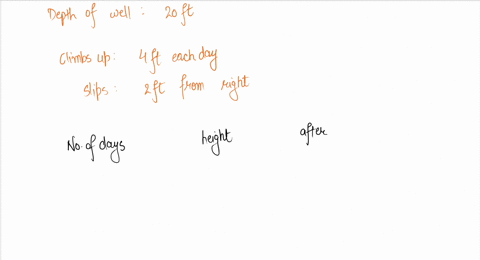 Depth of well : 20 ft
Climbs up : 4 ft each day
Slips : 2 ft from right
No. of days height after